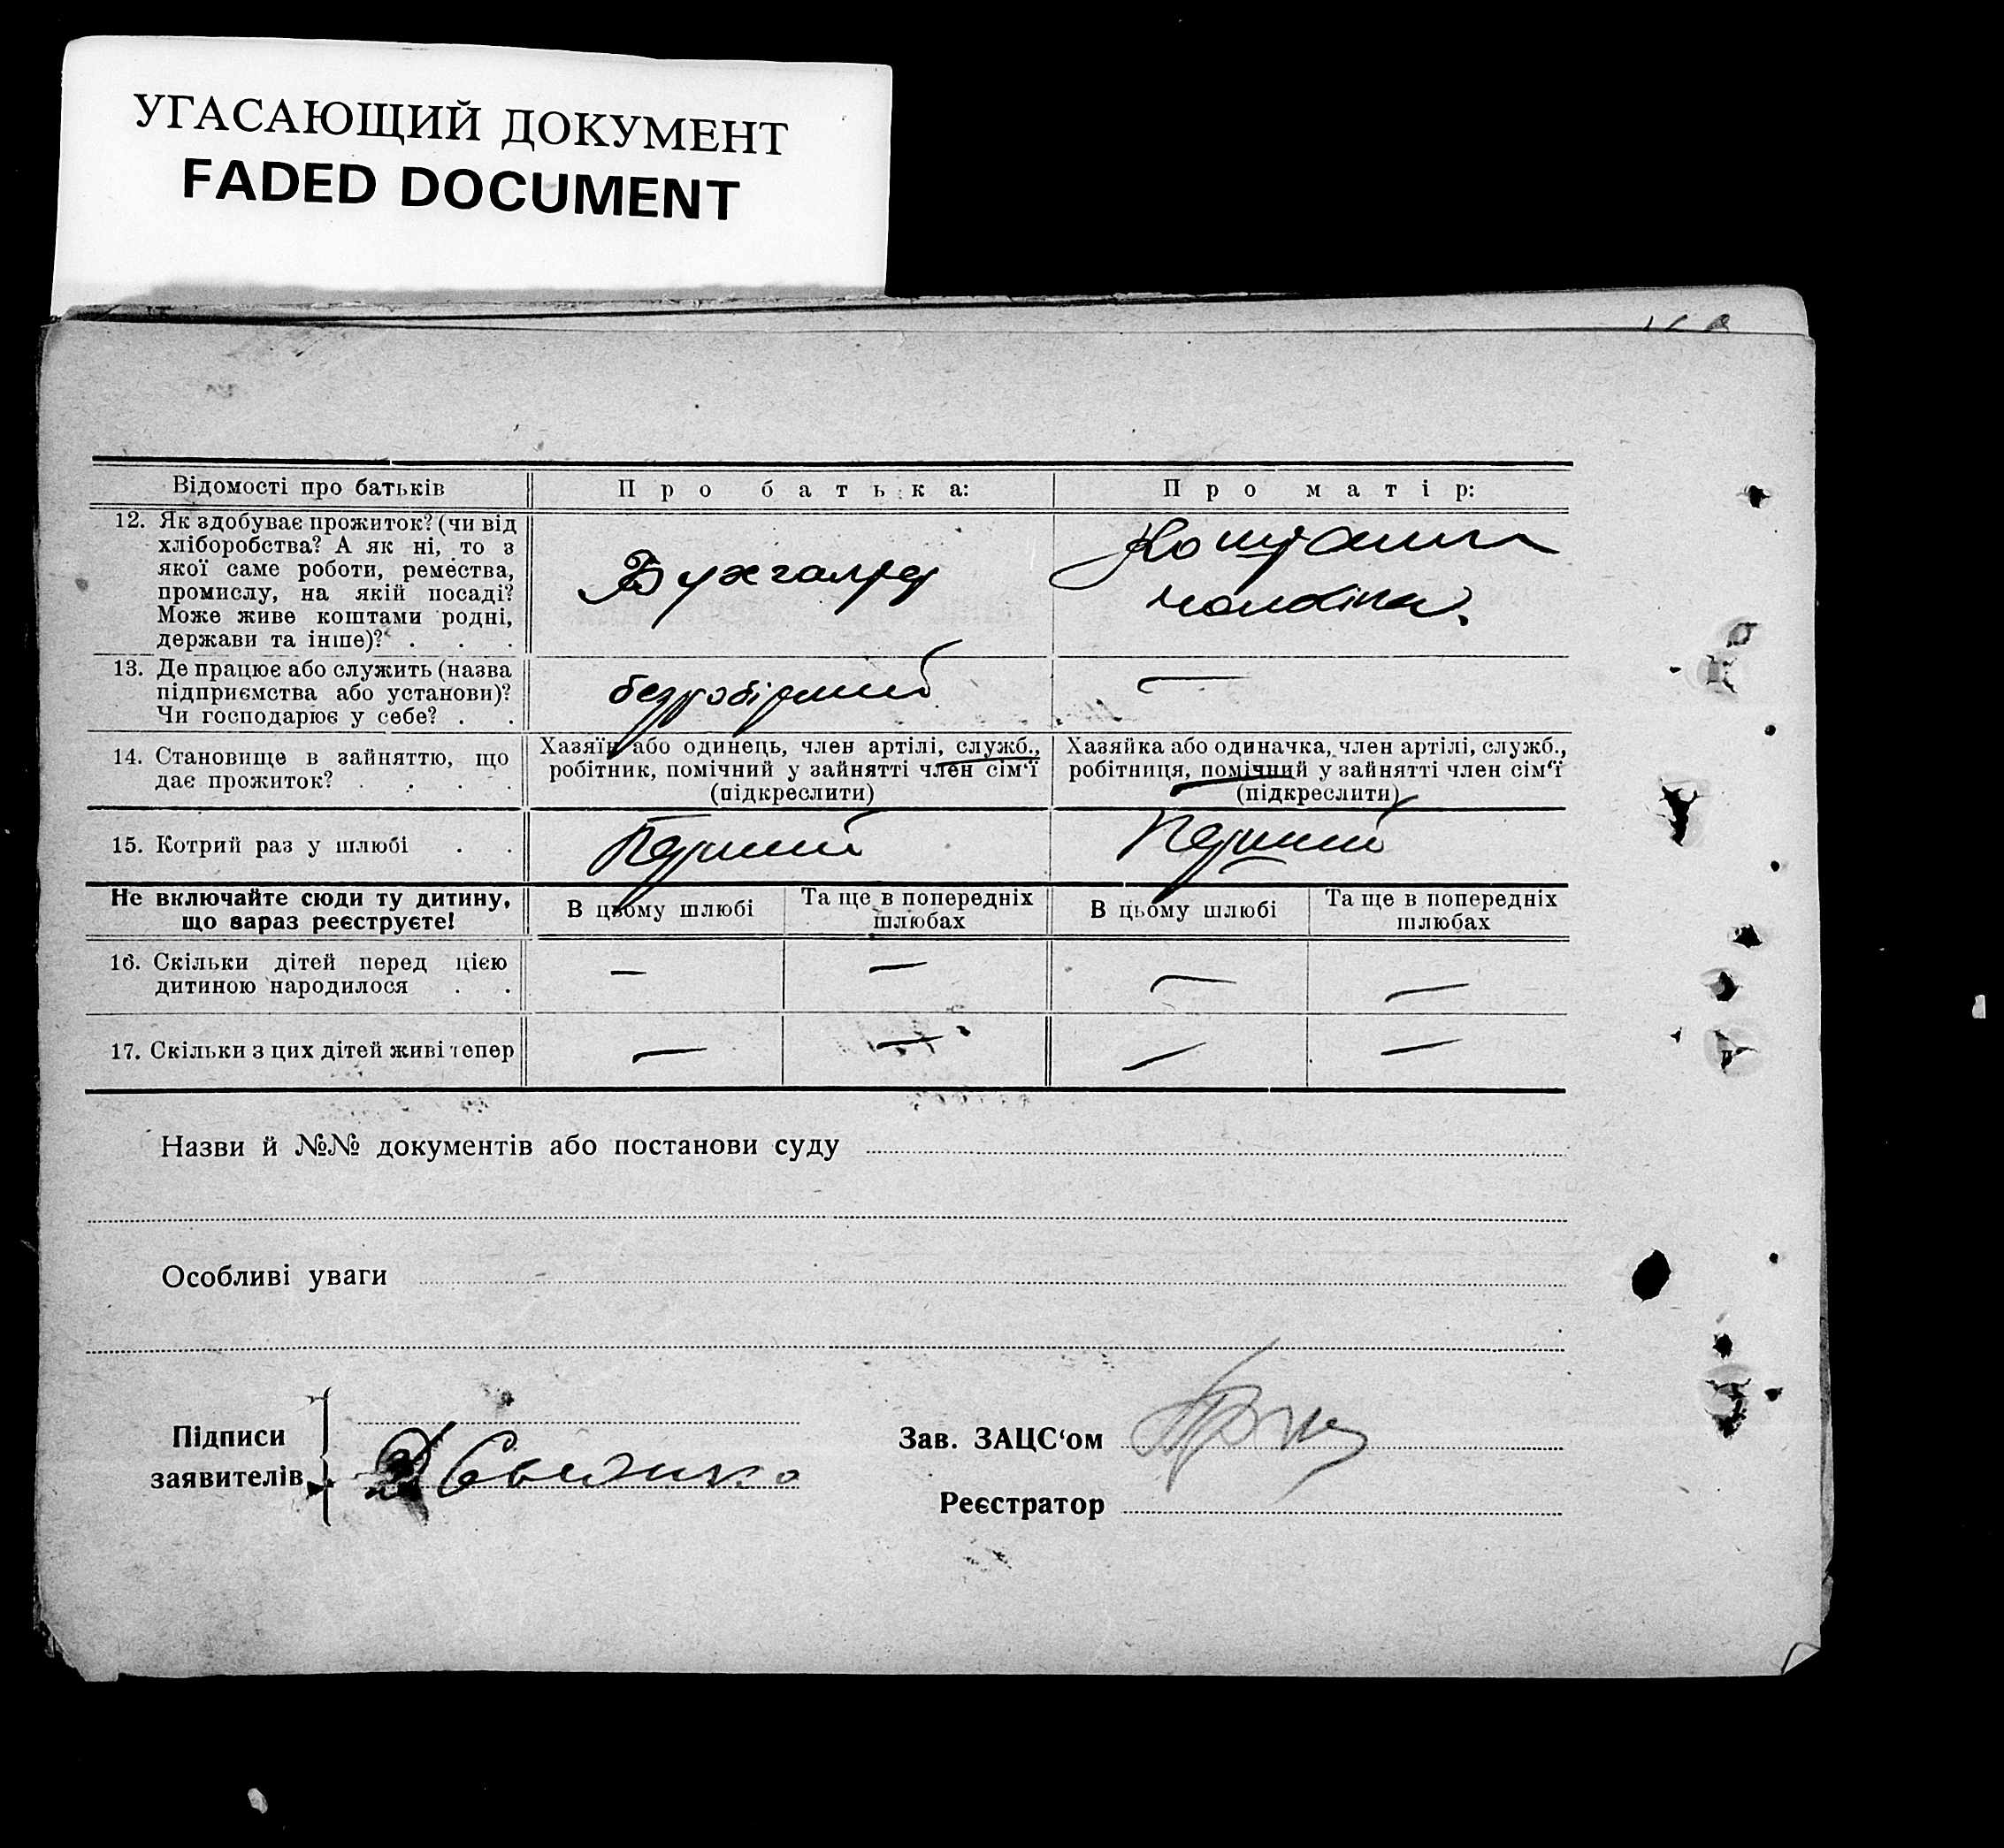 УГАСАЮЩИЙ ДОКУМЕНТ
FADED DOCUMENT
Відомості про батьків
Про батька:
Про матір:
12. Як здобуває прожиток? (чи від
хліборобства? А як ні, то з
якої саме роботи, ремества,
промислу, на якій посаді?
Може живе коштами родні,
держави та інше)? . . .
Бухгалтер
Коштами
чоловіка.
13. Де працює або служить (назва
підприємства або установи)?
Чи господарює у себе? . .
безробітний
—
14. Становище в зайняттю, що
дає прожиток? . . . .
Хазяїн або одинець, член артілі, служб.,
робітник, помічний у зайнятті член сім‘ї
(підкреслити)
Хазяйка або одиначка, член артілі, служб.,
робітниця, помічний у зайнятті член сім‘ї
(підкреслити)
15. Котрий раз у шлюбі . .
Перший
Перший
Не включайте сюди ту дитину,
що зараз реєструєте!
В цьому шлюбі
Та ще в попередніх
шлюбах
В цьому шлюбі
Та ще в попередніх
шлюбах
16. Скільки дітей перед цією
дитиною народилося . .
— — — —
17. Скільки з цих дітей живі тепер
— — — —
Назви й №№ документів або постанови суду
Особливі уваги
Підписи
заявителів
Зав. ЗАЦС‘ом
Реєстратор